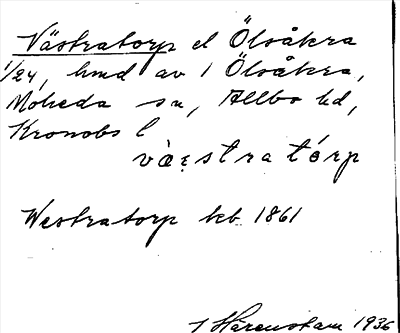 Västratorp el Ölsåkra
1/24, hmd av 1 Ölsåkra,
Moheda sn, Allbo hd,
Kronobs l
væstratórp
Westratorp kb 1861
1 Härenstam 1936